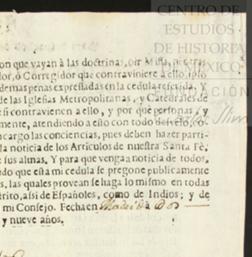 CENTRO DE
ESTUDIOS
DE HISTORIA
MÉXICO
on que vayan à las doctrinas, oir Missa, ni otras
dor, ò Corregidor que contraviniere a ello,
demas penas expressadas en la cedula referida. Y
de las Iglesias Metropolitanas, y Catedrales de
si contravienen a ello, y por que personas, y
mente, atendiendo a esto con todo desvelo,
ncargo las conciencias, pues deben hazer parti-
la noticia de los Articulos de nuestra Santa Fè,
e sus almas. Y para que venga noticia de todos,
do que esta mi cedula se pregone publicamente
s, las quales provean se haga lo mismo en todas
trito, assi de Españoles, como de Indios; y de
mi Consejo. Fecha en Madrid a dos
y nueve años.